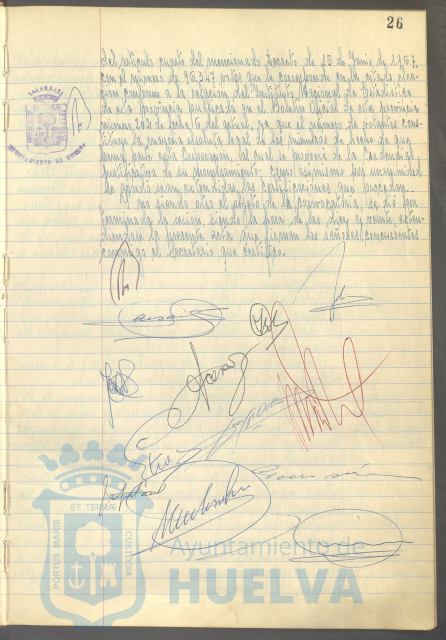 26
del artículo cuarto del mencionado Decreto de 15 de Junio de 1.967,
con el número de 96.347 votos que le corresponde en la citada elec-
ción conforme a la relación del Instituto Nacional de Estadística
de esta provincia publicada en el Boletín Oficial de esta provincia
número 202 de fecha del actual, ya que el número de votantes cons-
tituye la mayoría absoluta legal de los miembros de hecho de que
forma parte esta Corporación, la cual se provee de la Credencial
justificativa de su nombramiento. Como asimismo por unanimidad
se acordó sean extendidas las certificaciones que procedan.
No siendo otro el objeto de la convocatoria, se dió por
terminada la sesión, siendo la hora de las diez y veinte, exten-
diéndose la presente acta que firman los señores concurrentes
conmigo el Secretario que certifico.
AYUNTAMIENTO DE HUELVA
PORTUS MARIS ET TERRAE CUSTODIA
Ayuntamiento de
HUELVA